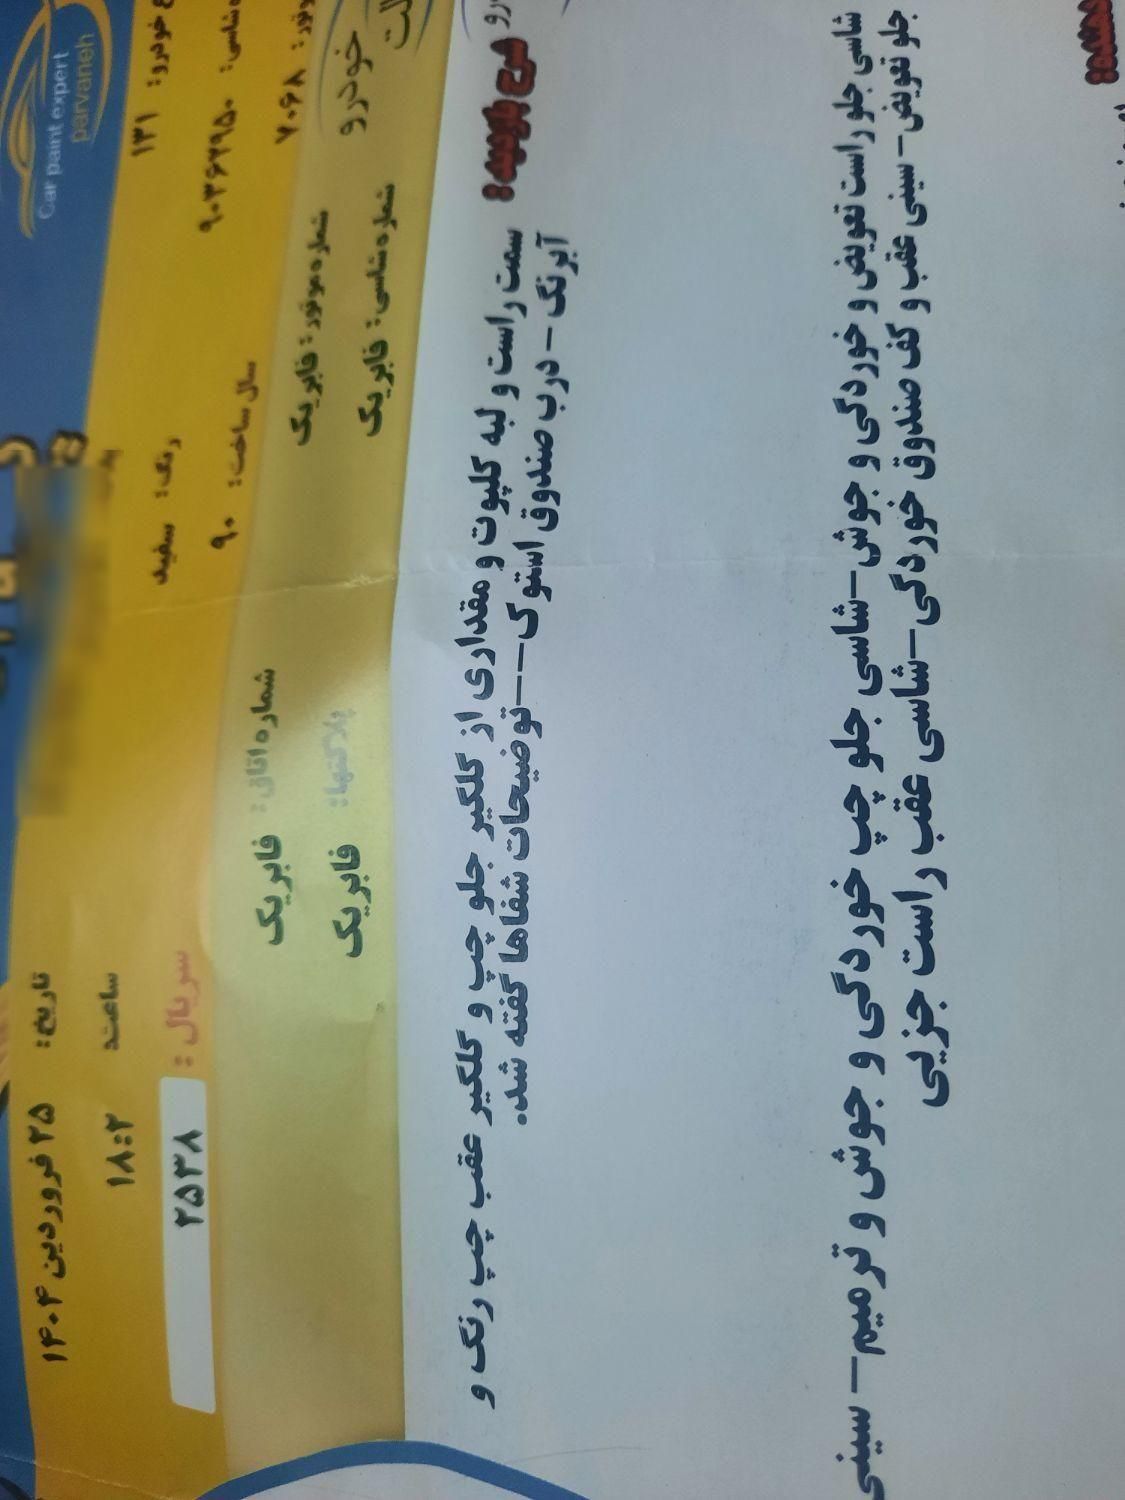 Car paint expert
parvaneh
تاریخ: ۲۵ فروردین ۱۴۰۴
خودرو: ۱۳۱
رنگ: سفید
ساعت: ۱۸:۲
شاسی:
سال ساخت: ۹۰
سریال: ۲۵۳۸
۷۰۶۸
شماره موتور: فابریک
شماره اتاق: فابریک
خودرو
شماره شاسی: فابریک
پلاکتها: فابریک
شرح بازدید:
سمت راست و لبه کاپوت و مقداری از گلگیر جلو چپ و گلگیر عقب چپ رنگ و
آبرنگ - درب صندوق استوک---توضیحات شفاها گفته شد.
شاسی جلو راست تعویض و خوردگی و جوش-شاسی جلو چپ خوردگی و جوش و ترمیم- سینی
جلو تعویض- سینی عقب و کف صندوق خوردگی-شاسی عقب راست جزیی